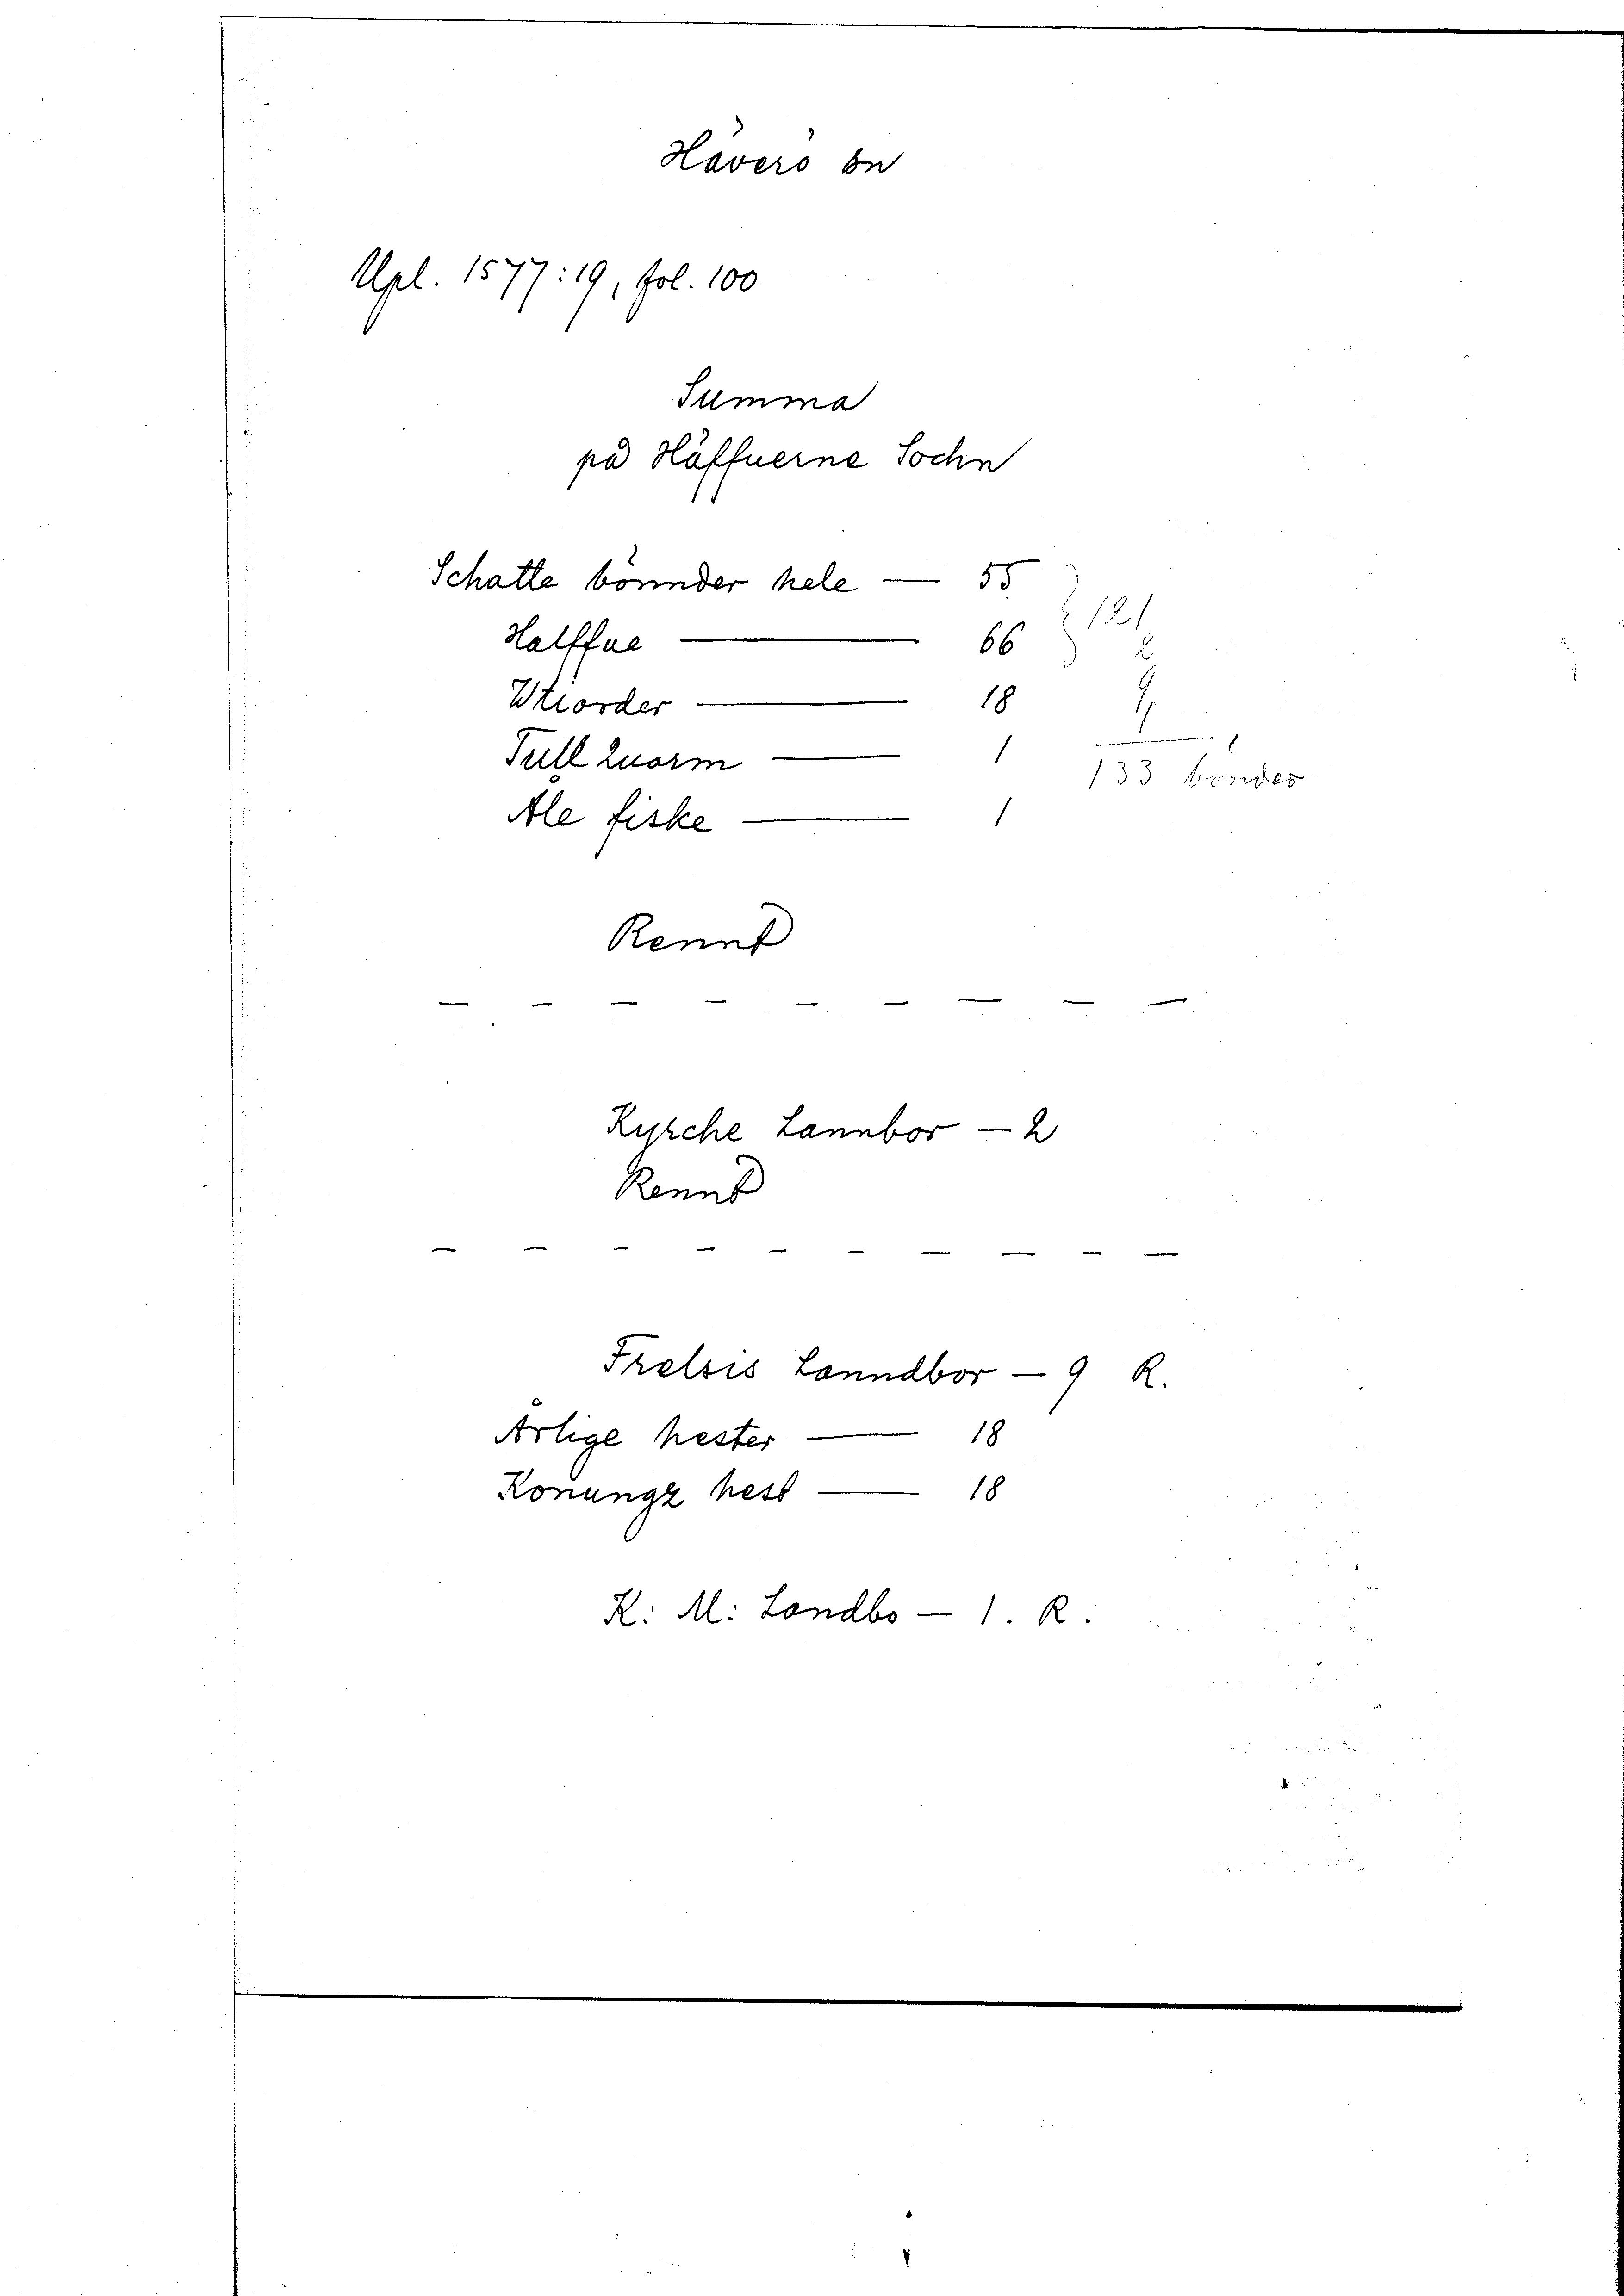 Häverö sn
Upl. 1577:19, fol. 100
Summa
på Häffuerne Sochn
Schatte bönnder hele — 55
Halffue — 66
121
2
Wtiorder — 18
9
Tull Quarn — 1
133 bönder
Ale fiske — 1
Rennt
- - - - - - - - -
Kyrche Lannbor — 2
Rennt
- - - - - - - - - -
Frelsis Lanndbor — 9 R.
Årlige hester — 18
Konungz hest — 18
K: M: Landbo — 1. R.